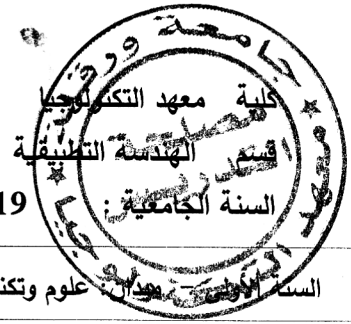 جامعة ورقلة
كلية معهد التكنولوجيا
قسم الهندسة التطبيقية
السنة الجامعية : 19
السنة الأولى - ميدان: علوم وتكن
معهد التكنولوجيا